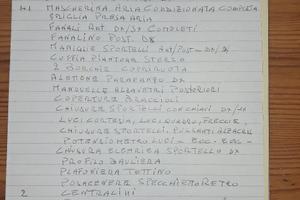 N.1 MASCHERINA ARIA CONDIZIONATA COMPLETA
GRIGLIA PRESA ARIA
FANALI ANT DX/SX COMPLETI
FANALINO POST. DX
MANIGLIE SPORTELLI ANT/POST - DX/SX
CUFFIA PIANTONE STERZO
2 BORCHIE COPRIRUOTA
ALETTONE PARAFANGO DX
MANOVELLE ALZAVETRI POSTERIORI
COPERTURE BRACCIOLI
CHIUSURE SPORTELLI DX/SX
LUCI CORTESIA, QUADRO, FRECCE,
CHIUSURE SPORTELLI, PULSANTI
POTENZIOMETRO LUCI - ECC - ECC -
CHIUSURA ELETTRICA SPORTELLO DX
PROFILO BAULIERA
PLAFONIERA TETTINO
POSACENERE SPECCHIETTO RETRO
2 CENTRALINI